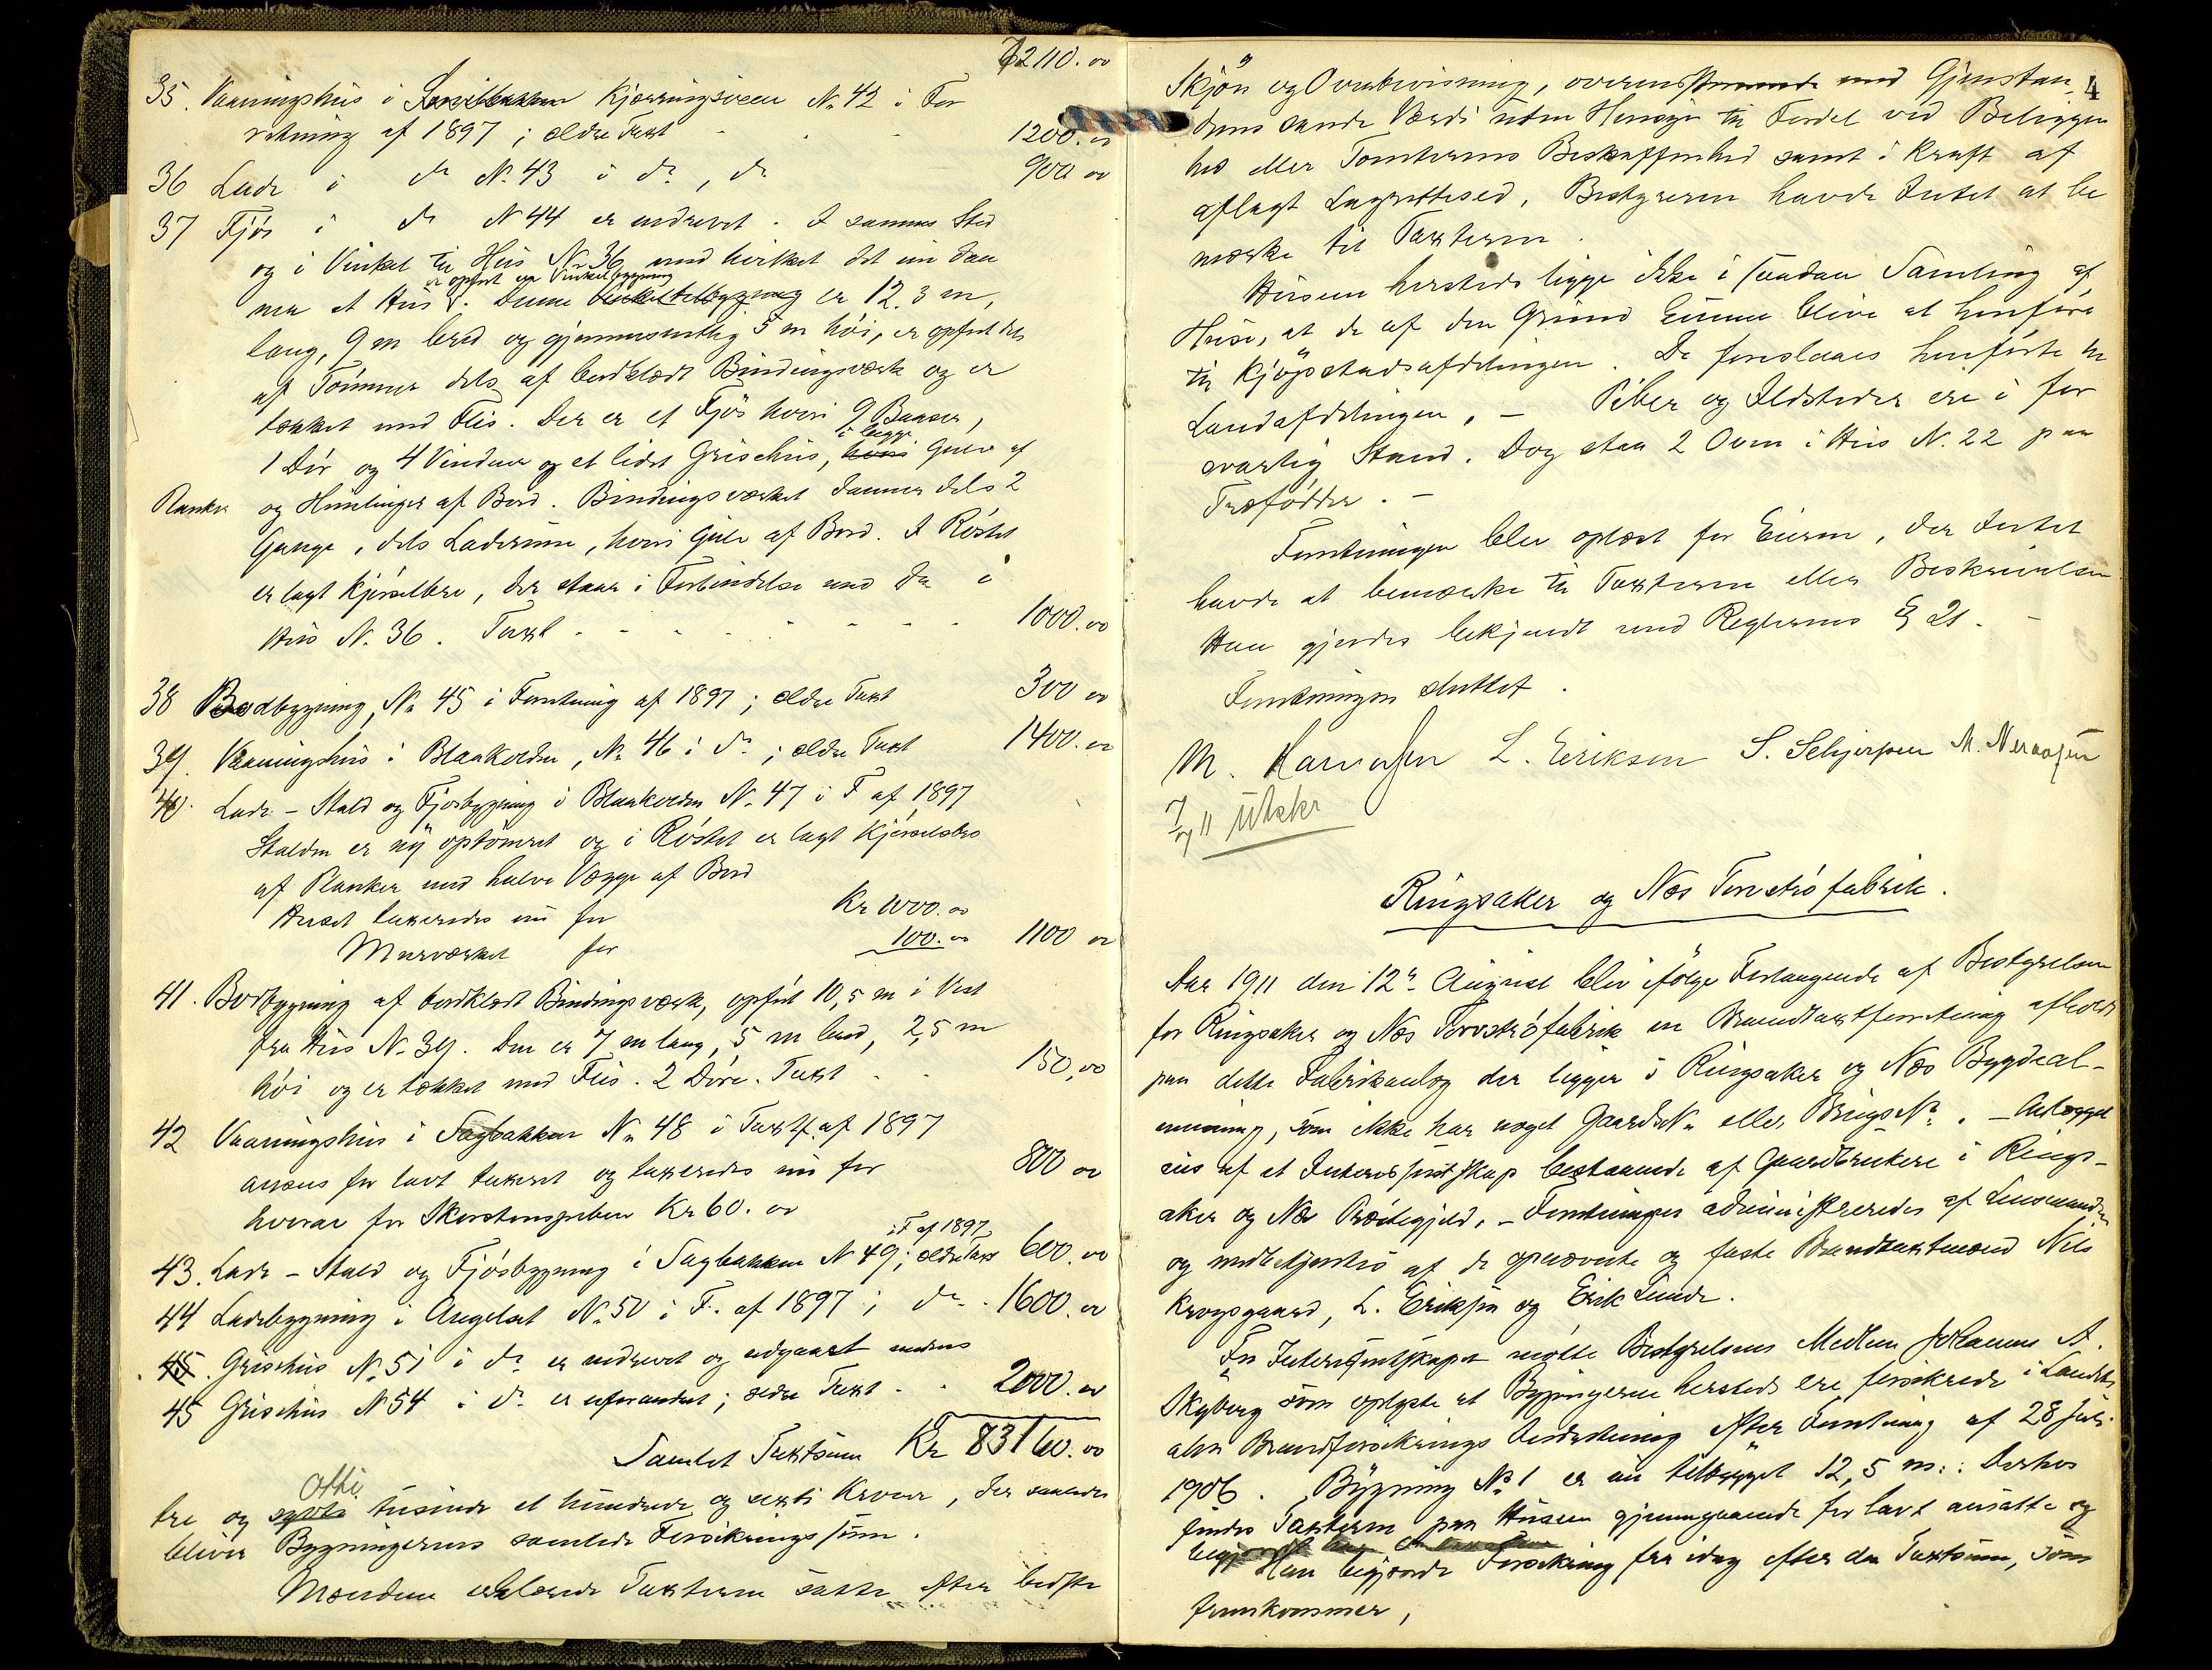 72110.00
35. Vaaningshus i Kjærringsveen No 42 i For
retning af 1897; ældre Taxt 1200.00
36 Lade i do No. 43 i do, do 900 00
37 Fjøs i do No 44 er nedrevet. I sammes Sted
og i Vinkel til Hus No 36 med hvilket det nu dan
er opført en Vinkelbygning
ner et Hus. Denne Vinkelbygning er 12.3 m,
lang, 9 m bred og gjennemsnitlig 5 m høi, er opført dels
af Tømmer dels af bordklædt Bindingsværk og er
tækket med Flis. Der er et Fjøs hvori 9 Baaser,
i begge
1 Dør og 4 Vinduer og et lidet Grisehus, hvori Gulv af
Planker og Himlinger af Bord. Bindingsværket danner dels 2
Gange, dels Laderum, hvori Gulv af Bord. I Røstet
er lagt Kjørselbro, der staar i Forbindelse med den i
Hus No. 36. Taxt 1000.00
38 Bodbygning, No 45 i Forretning af 1897; ældre Taxt 300 00
39. Vaaningshus i Blaakolden, No 46 i do; ældre Taxt 1400.00
40. Lade-Stald og Fjøsbygning i Blaakolden No. 47 i F af 1897
Stalden er ny optømret og i Røstet er lagt Kjørselsbro
af Planker med halve Vægge af Bord
Huset taxeredes nu for Kr 1000.00
Murværket for 100.00 1100 00
41. Bodbygning af bordklædt Bindingsværk, opført 10,5 m i Vest
fra Hus No 39. Den er 7 m lang, 5 m bred, 2,5 m
høi og er tækket med Flis. 2 Døre. Taxt 150,00
42 Vaaningshus i Sagbakken No 48 i Taxtf. af 1897
ansees for lavt taxeret og taxeredes nu for 800 00
hvorav for Skorstenspiben Kr 60.00
i F af 1897
43. Lade-Stald og Fjøsbygning i Sagbakken No 49; ældre Taxt 600.00
44 Ladebygning i No 50 i F. af 1897; do 1600.00
45. Grisehus No 51 i do er nedrevet og udgaaet
45 Grisehus No 54 i do er uforandret; ældre Taxt 2000.00
Samlet Taxtsum Kr 83160.00
otti
tre og sytti tusinde et hundrede og sexti Kroner, der saaledes
bliver Bygningernes samlede Forsikringssum.
Mændene erklærede Taxterne satte efter bedste
4
Skjøn og Overbevisning, overensstemmende med Gjenstan
dens sande Værdi uden Hensyn til Fordel ved Beliggen
hed eller Tomternes Beskaffenhed samt i Kraft af
aflagt Lagrettesed, Bestyreren havde Intet at be
mærke til Taxterne.
Husene hersteds ligge ikke i saadan Samling af
Huse, at de af den Grund kunne blive at henføre
til Kjøpstadsafdelingen. De foreslaaes henførte til
Landafdelingen, - Piber og Ildsteder ere i for
svarlig Stand. Dog staa 2 Ovne i Hus No. 22 paa
Træfødder. -
Forretningen blev oplæst for Eieren, der Intet
havde at bemærke til Taxterne eller Beskrivelsen
Han gjordes bekjendt med Reglernes § 21. -
Forretningen sluttet.
M. L. Eriksen S. M.
7/ 11 Utskr
Ringsaker og Næs Torvstrøfabrik.
Aar 1911 den 12te August blev ifølge Forlangende af Bestyrelsen
for Ringsaker og Næs Torvstrøfabrik en Brandtaxtforretning afholdt
paa dette Fabrikanlæg der ligger i Ringsaker og Næs Bygdeal-
menning, som ikke har noget GaardsNo eller BrugsNo. - Anlægget
eies af et Interessentskap bestaaende af Gaardbrukere i Rings-
aker og Næs Præstegjeld. - Forretningen administreredes af Lensmanden
og medbetjentes af de opnævnte og faste Brandtaxtmænd Nils
Krogsgaard, L. Eriksen og Erik Lunde.
For Interessentskapet møtte Bestyrelsens Medlem Johannes A.
Skyberg som oplyste at Bygningerne hersteds ere forsikrede i Landets
alm Brandforsikrings Indretning efter Forretning af 28 Juli
1906. Bygning No 1 er nu tilbygget 12,5 m.: Derhos
findes Taxterne paa Husene gjennemgaaende for lavt ansatte og
Han begjærede Forsikring fra idag efter den Taxtsum, som
fremkommer,